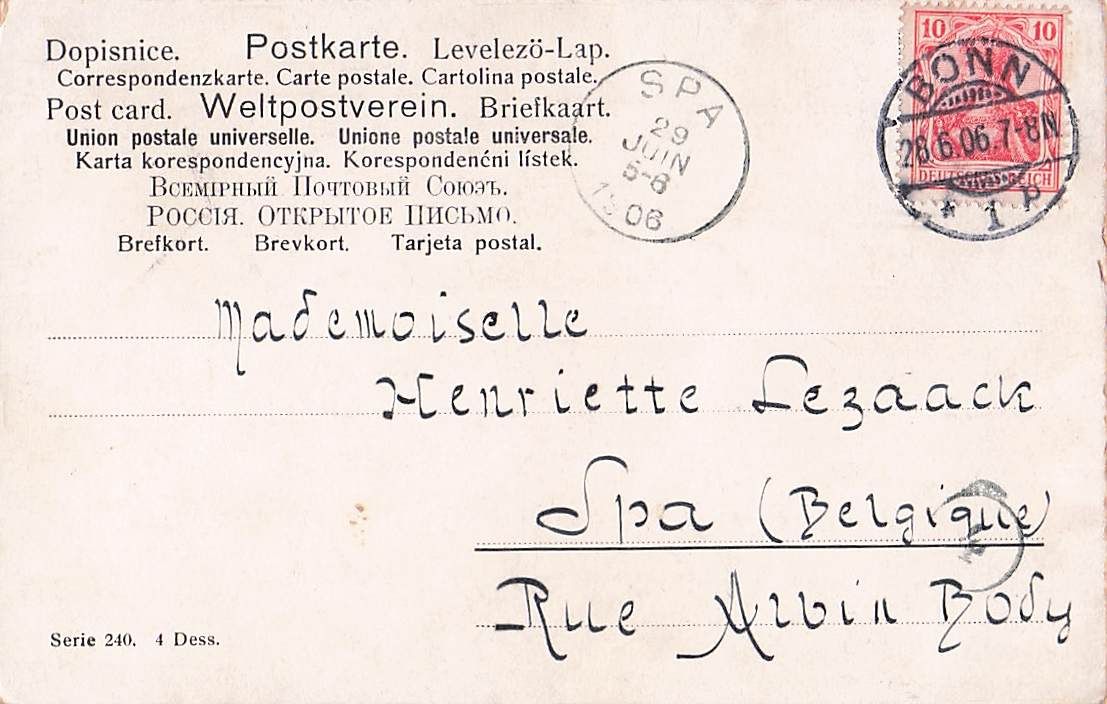 Dopisnice. Postkarte. Levelezö-Lap.
Correspondenzkarte. Carte postale. Cartolina postale.
Post card. Weltpostverein. Briefkaart.
Union postale universelle. Unione postale universale.
Karta korespondencyjna. Korespondenćni lístek.
Всемірный Почтовый Союзъ.
РОССІЯ. ОТКРЫТОЕ ПИСЬМО.
Brefkort. Brevkort. Tarjeta postal.
SPA
29
JUIN
5-6
1906
10 10
DEUTSCHES REICH
BONN
28.6.06.7-8N
* 1 p
Mademoiselle
Henriette Lezaack
Spa (Belgique)
Rue Albin Body
Serie 240. 4 Dess.